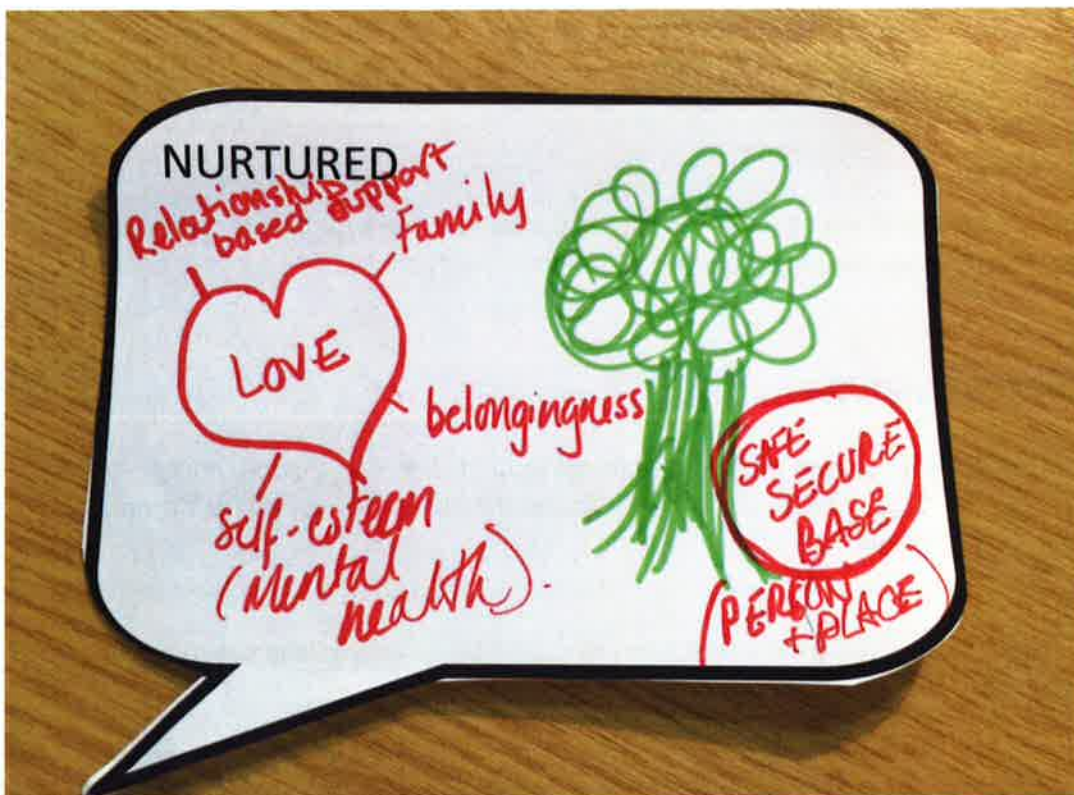 NURTURED
Relationship
based support
Family
LOVE
belongingness
self-esteem
(Mental
health).
SAFE
SECURE
BASE
(PERSON
+ PLACE)